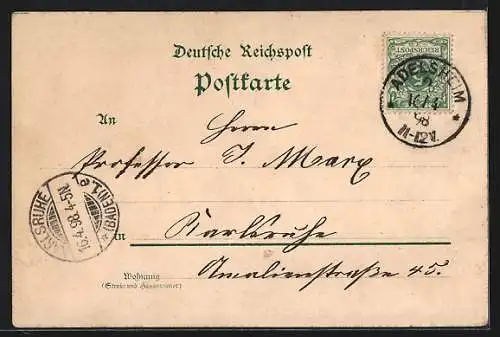 Deutsche Reichspost
Postkarte
REICHSPOST
ADELSHEIM
16/4
98
11-12V.
An
Herrn
Professor J. Marx
in Karlsruhe
Amalienstraße 45.
KARLSRUHE
16.4.98.4-5N.
(BADEN) 1.
Wohnung
(Straße und Hausnummer)